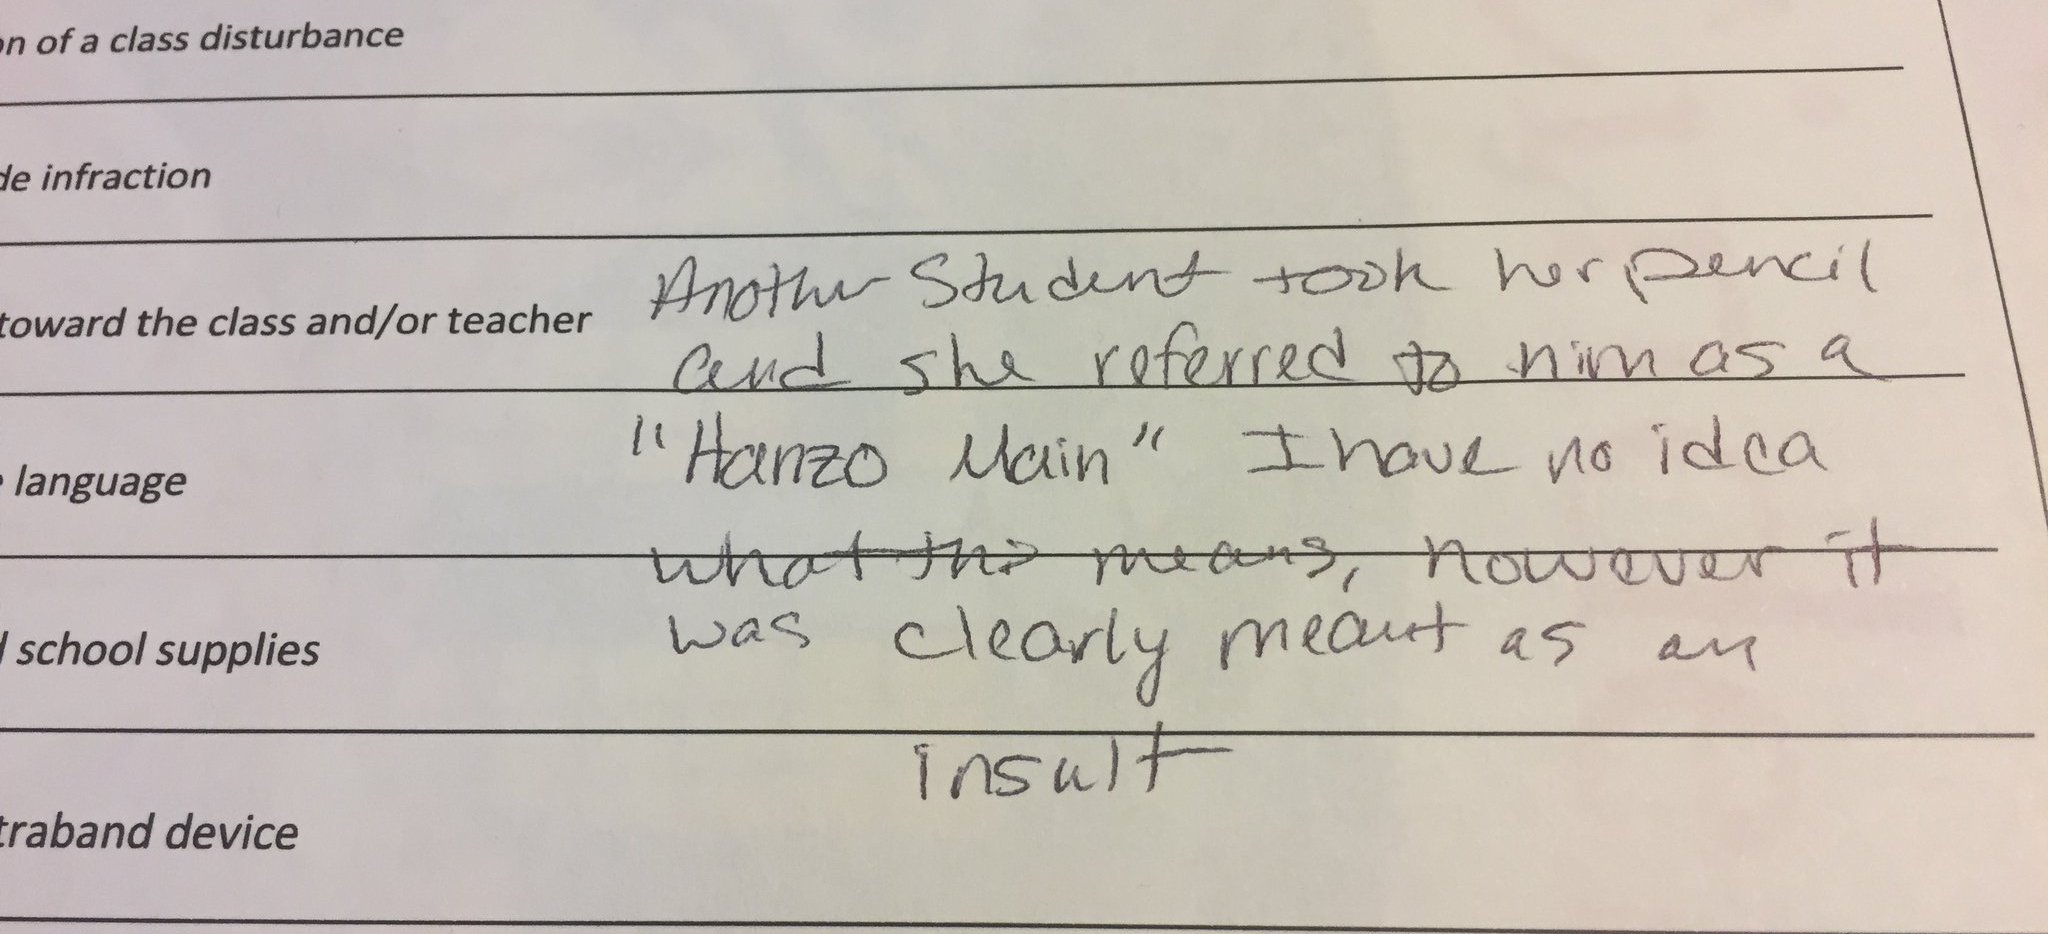 on of a class disturbance
de infraction
Another Student took her pencil
toward the class and/or teacher
and she referred to him as a
"Hanzo Main" I have no idea
language
what this means, however it
was clearly meant as an
school supplies
insult
traband device